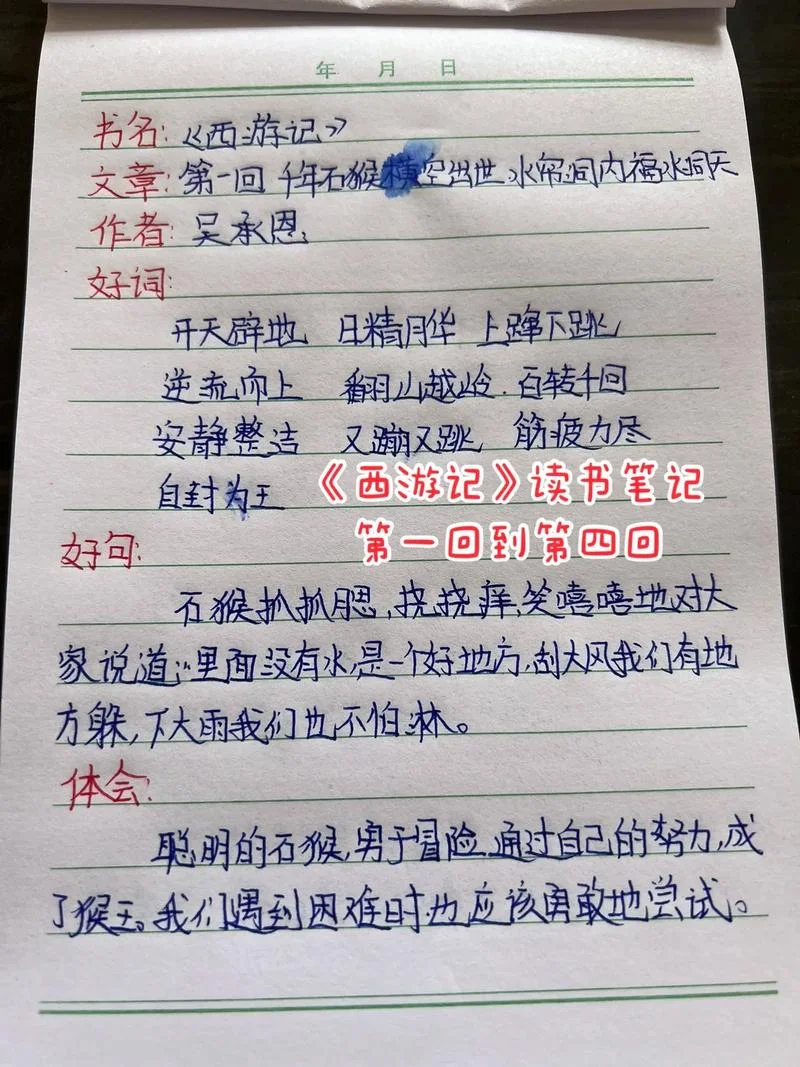 年 月 日
书名:《西游记》
文章:第一回 千年石猴横空出世 水帘洞内福水洞天
作者:吴承恩
好词:
开天辟地 日精月华 上蹿下跳
逆流而上 翻山越岭 百转千回
安静整洁 又蹦又跳 筋疲力尽
自封为王
《西游记》读书笔记
第一回到第四回
好句:
石猴抓抓腮,挠挠痒,笑嘻嘻地对大
家说道:“里面没有水,是一个好地方,刮大风我们有地
方躲,下大雨我们也不怕淋。
体会:
聪明的石猴,勇于冒险,通过自己的努力,成
了猴王。我们遇到困难时也应该勇敢地尝试。